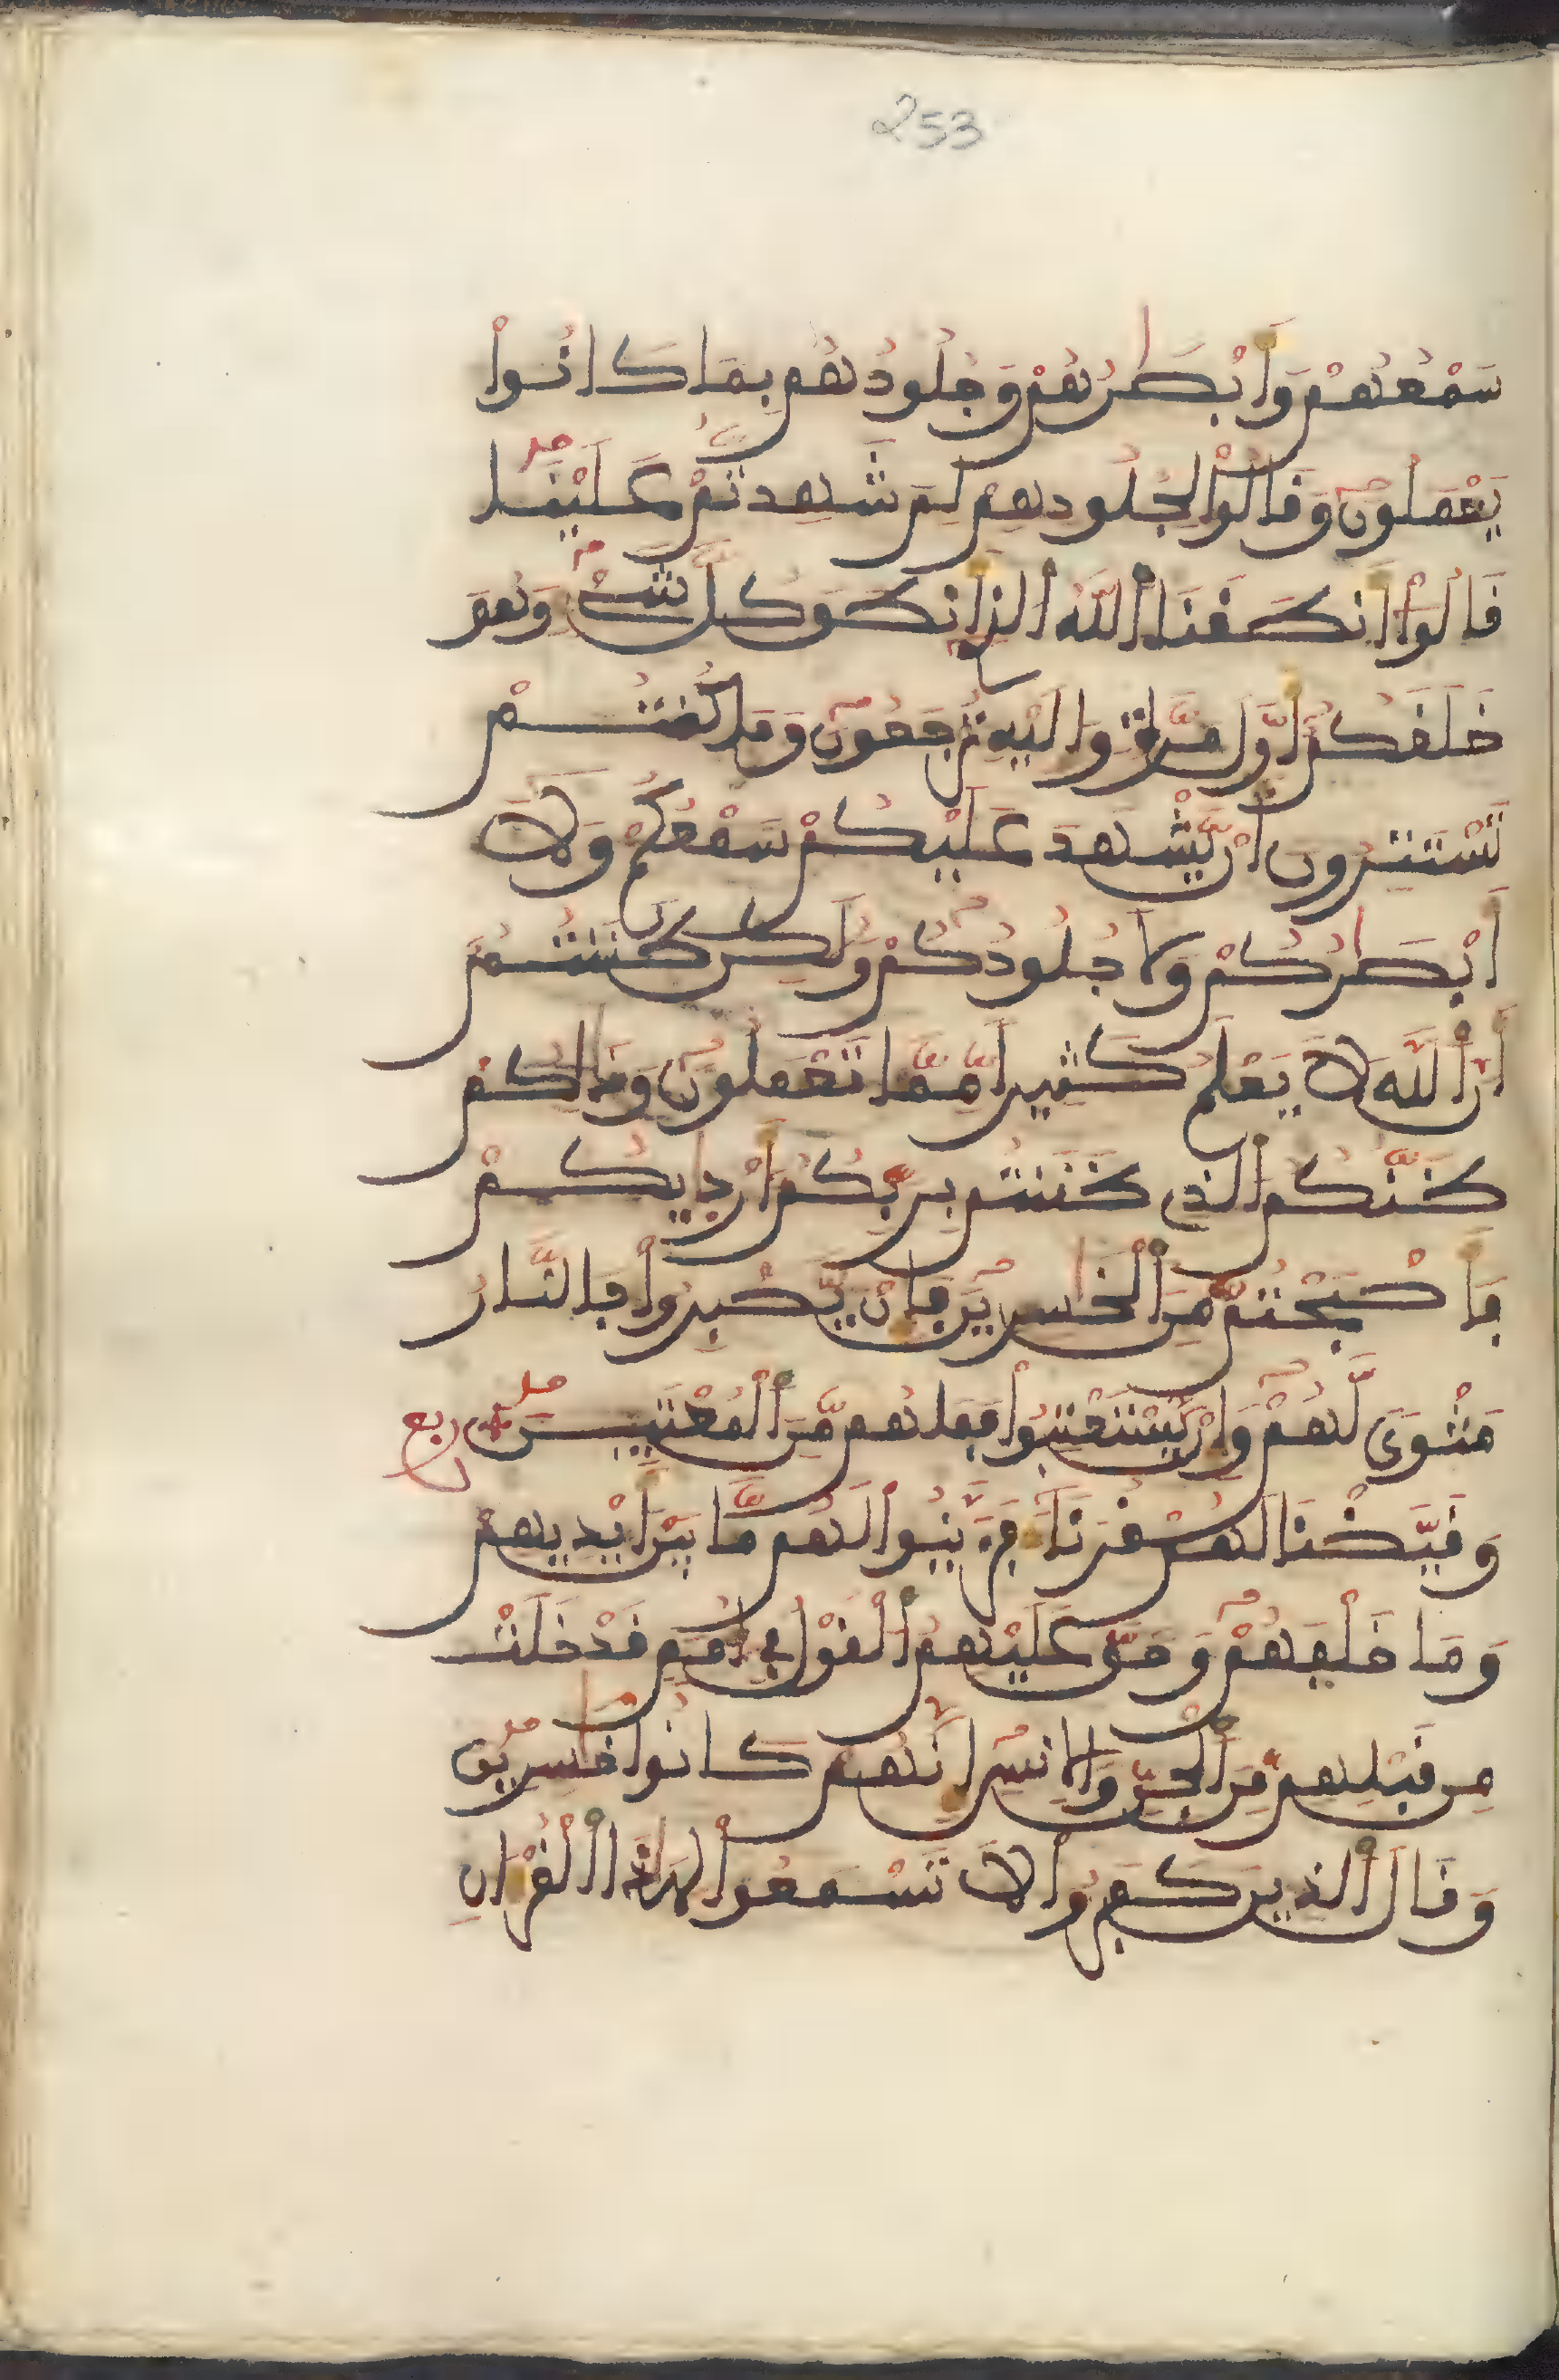 253
سَمْعُهُمْ وَأَبْصَٰرُهُمْ وَجُلُودُهُم بِمَا كَانُواْ
يَعْمَلُونَ وَقَالُواْ لِجُلُودِهِمْ لِمَ شَهِدتُّمْ عَلَيْنَا
قَالُواْ أَنطَقَنَا اَللَّهُ اُلذِے أَنطَقَ كُلَّ شَےْءٍ وَهُوَ
خَلَقَكُمْ أَوَّلَ مَرَّةٍ وَإِلَيْهِ تُرْجَعُونَ وَمَا كُنتُمْ
تَسْتَتِرُونَ أَنْ يَّشْهَدَ عَلَيْكُمْ سَمْعُكُمْ وَلَآ
أَبْصَٰرُكُمْ وَلَا جُلُودُكُمْ وَلَٰكِن ظَنَنتُمُۥٓ
أَنَّ اَللَّهَ لَا يَعْلَمُ كَثِيراً مِّمَّا تَعْمَلُونَ وَذَٰلِكُمْ
ظَنُّكُمُ اُلذِے ظَنَنتُم بِرَبِّكُمُۥٓ أَرْدَىٰكُمْ
فَأَصْبَحْتُم مِّنَ اَلْخَٰسِرِينَ فَإِنْ يَّصْبِرُواْ فَالنَّارُ
مَثْوىً لَّهُمْ وَإِنْ يَّسْتَعْتِبُواْ فَمَا هُم مِّنَ اَلْمُعْتَبِينَ ربع
وَقَيَّضْنَا لَهُمْ قُرَنَآءَ فَزَيَّنُواْ لَهُم مَّا بَيْنَ أَيْدِيهِمْ
وَمَا خَلْفَهُمْ وَحَقَّ عَلَيْهِمُ اُلْقَوْلُ فِے أُمَمٍ قَدْ خَلَتْ
مِن قَبْلِهِم مِّنَ اَلْجِنِّ وَالْإِنسِ إِنَّهُمْ كَانُواْ خَٰسِرِينَ
وَقَالَ اَلذِينَ كَفَرُواْ لَا تَسْمَعُواْ لِهَٰذَا اَلْقُرْءَانِ